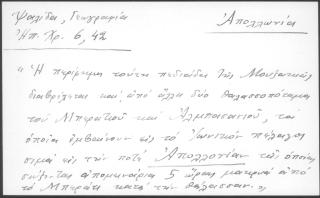 Ψαλίδα, Γεωγραφία Ἀπολλωνία
Ἠπ. Χρ. 6, 42
"Ἡ περίφημη τούτη πεδιάδα τῆς Μουζακιᾶς
διαβρέχεται καί ἀπό ἄλλα δύο θαλασσοπόταμα
τοῦ Μπρατιοῦ καί Ἀλμπασανιοῦ, τά
ὁποῖα ἐμβαίνουν εἰς τό Ἰωνικόν πέλαγος
σιμά εἰς τήν ποτέ Ἀπολλονίαν τῆς ὁποίας
σώζονται ἀπομεινάρια 5 ὥρας μακρυά ἀπό
τό Μπεράτι κατά τήν θάλασσαν."